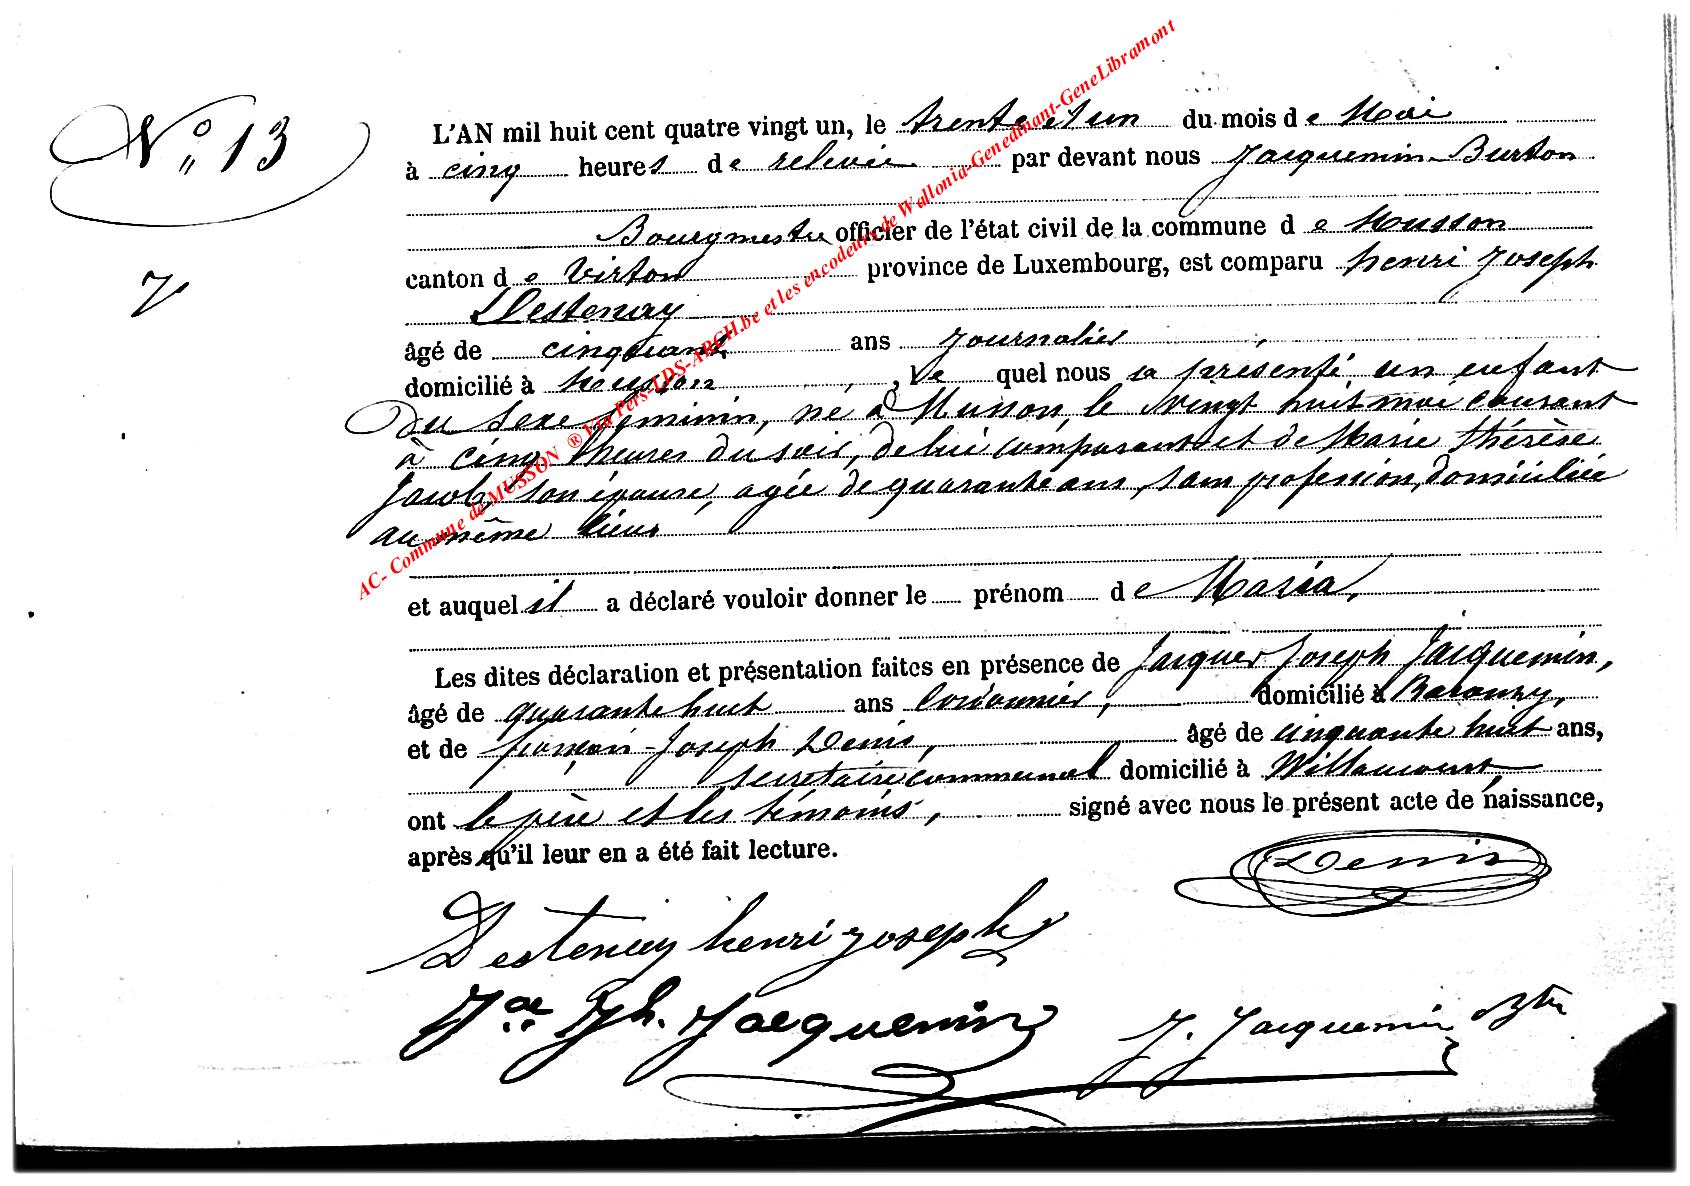 N° 13
L'AN mil huit cent quatre vingt un, le trente et un du mois de Mai
à cinq heures de relevée par devant nous Jacquemin-Burton
Bourgmestre officier de l'état civil de la commune de Musson
canton de Virton province de Luxembourg, est comparu henri Joseph
Destenay
âgé de cinquante ans journalier
domicilié à Musson, Le quel nous a présenté un enfant
du sexe féminin, né à Musson, le vingt huit mai courant
à cinq heures du soir, de lui comparant et de Marie Thérèse
Jacob, son épouse, agée de quarante ans, sans profession, domiciliée
au même lieu
et auquel il a déclaré vouloir donner le prénom de Maria,
Les dites déclaration et présentation faites en présence de Jacques Joseph Jacquemin,
âgé de quarante huit ans cordonnier, domicilié à Baranzy,
et de françois-Joseph Denis, âgé de cinquante huit ans,
secrétaire communal domicilié à Willancourt,
ont le père et les témoins, signé avec nous le présent acte de naissance,
après qu'il leur en a été fait lecture.
Denis
Destenay henri joseph
Jph. Jacquemin
J. Jacquemin Btn
AC- Commune de MUSSON ® Via Pers-LDS-ARCH.be et les encodeurs de Wallonia-Genedinant-GeneLibramont